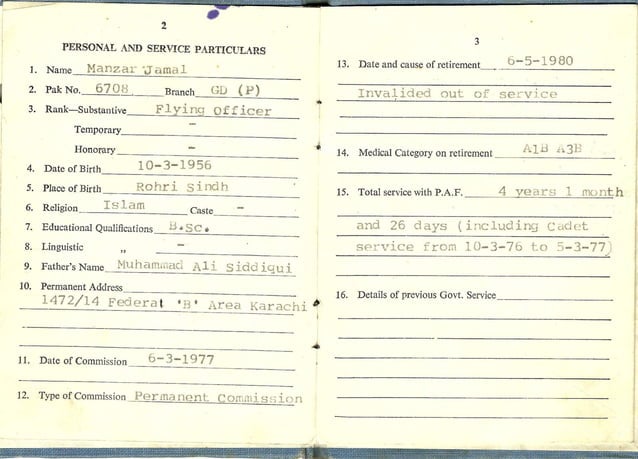 2
PERSONAL AND SERVICE PARTICULARS
1. Name Manzar Jamal
2. Pak No. 6708 Branch GD (P)
3. Rank—Substantive Flying Officer
Temporary –
Honorary –
4. Date of Birth 10-3-1956
5. Place of Birth Rohri Sindh
6. Religion Islam Caste –
7. Educational Qualifications B.Sc.
8. Linguistic „ –
9. Father's Name Muhammad Ali Siddiqui
10. Permanent Address
1472/14 Federat 'B' Area Karachi
11. Date of Commission 6-3-1977
12. Type of Commission Permanent Commission
3
13. Date and cause of retirement 6-5-1980
Invalided out of service
14. Medical Category on retirement A1B A3B
15. Total service with P.A.F. 4 years 1 month
and 26 days (including Cadet
service from 10-3-76 to 5-3-77)
16. Details of previous Govt. Service